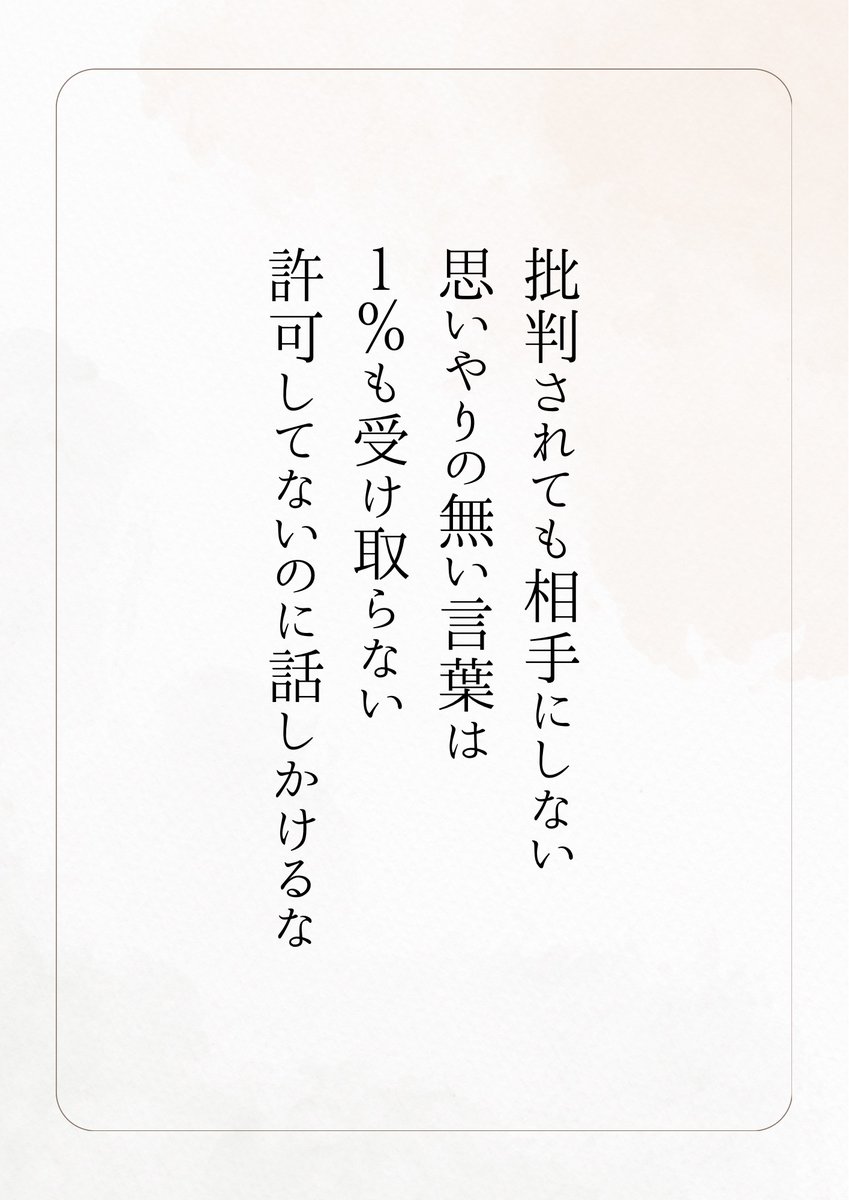 批判されても相手にしない
思いやりの無い言葉は
1%も受け取らない
許可してないのに話しかけるな